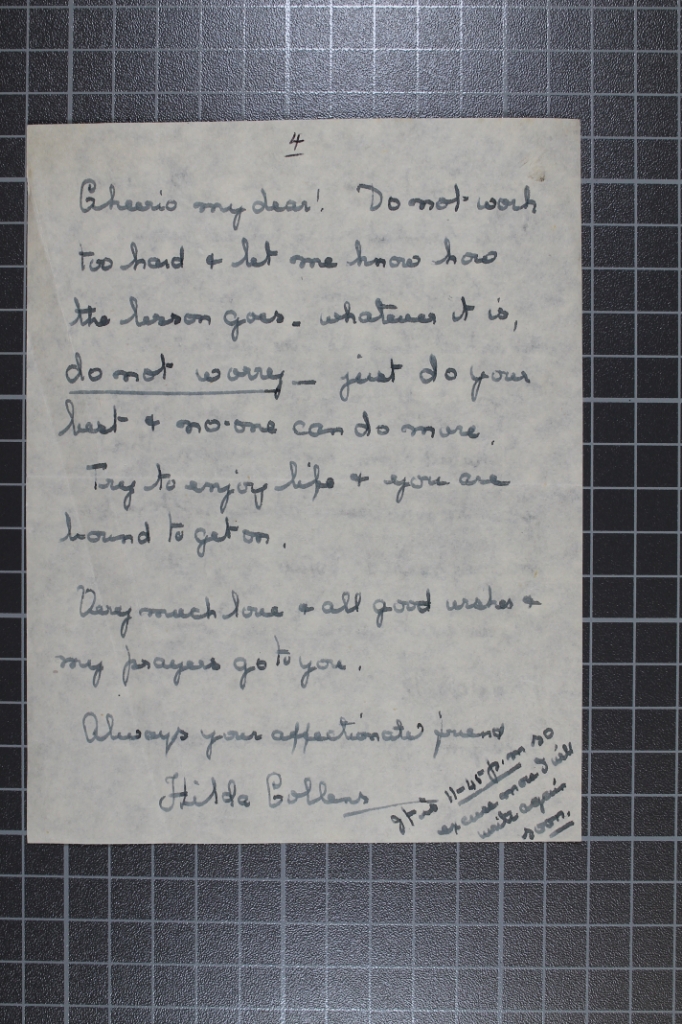 4
Cheerio my dear! Do not work
too hard & let me know how
the lesson goes - whatever it is,
do not worry - just do your
best & no-one can do more.
Try to enjoy life & you are
bound to get on.
Very much love & all good wishes &
my prayers go to you.
Always your affectionate friend
Hilda Collens
It is 11-45 p.m so
excuse more I will
write again
soon.